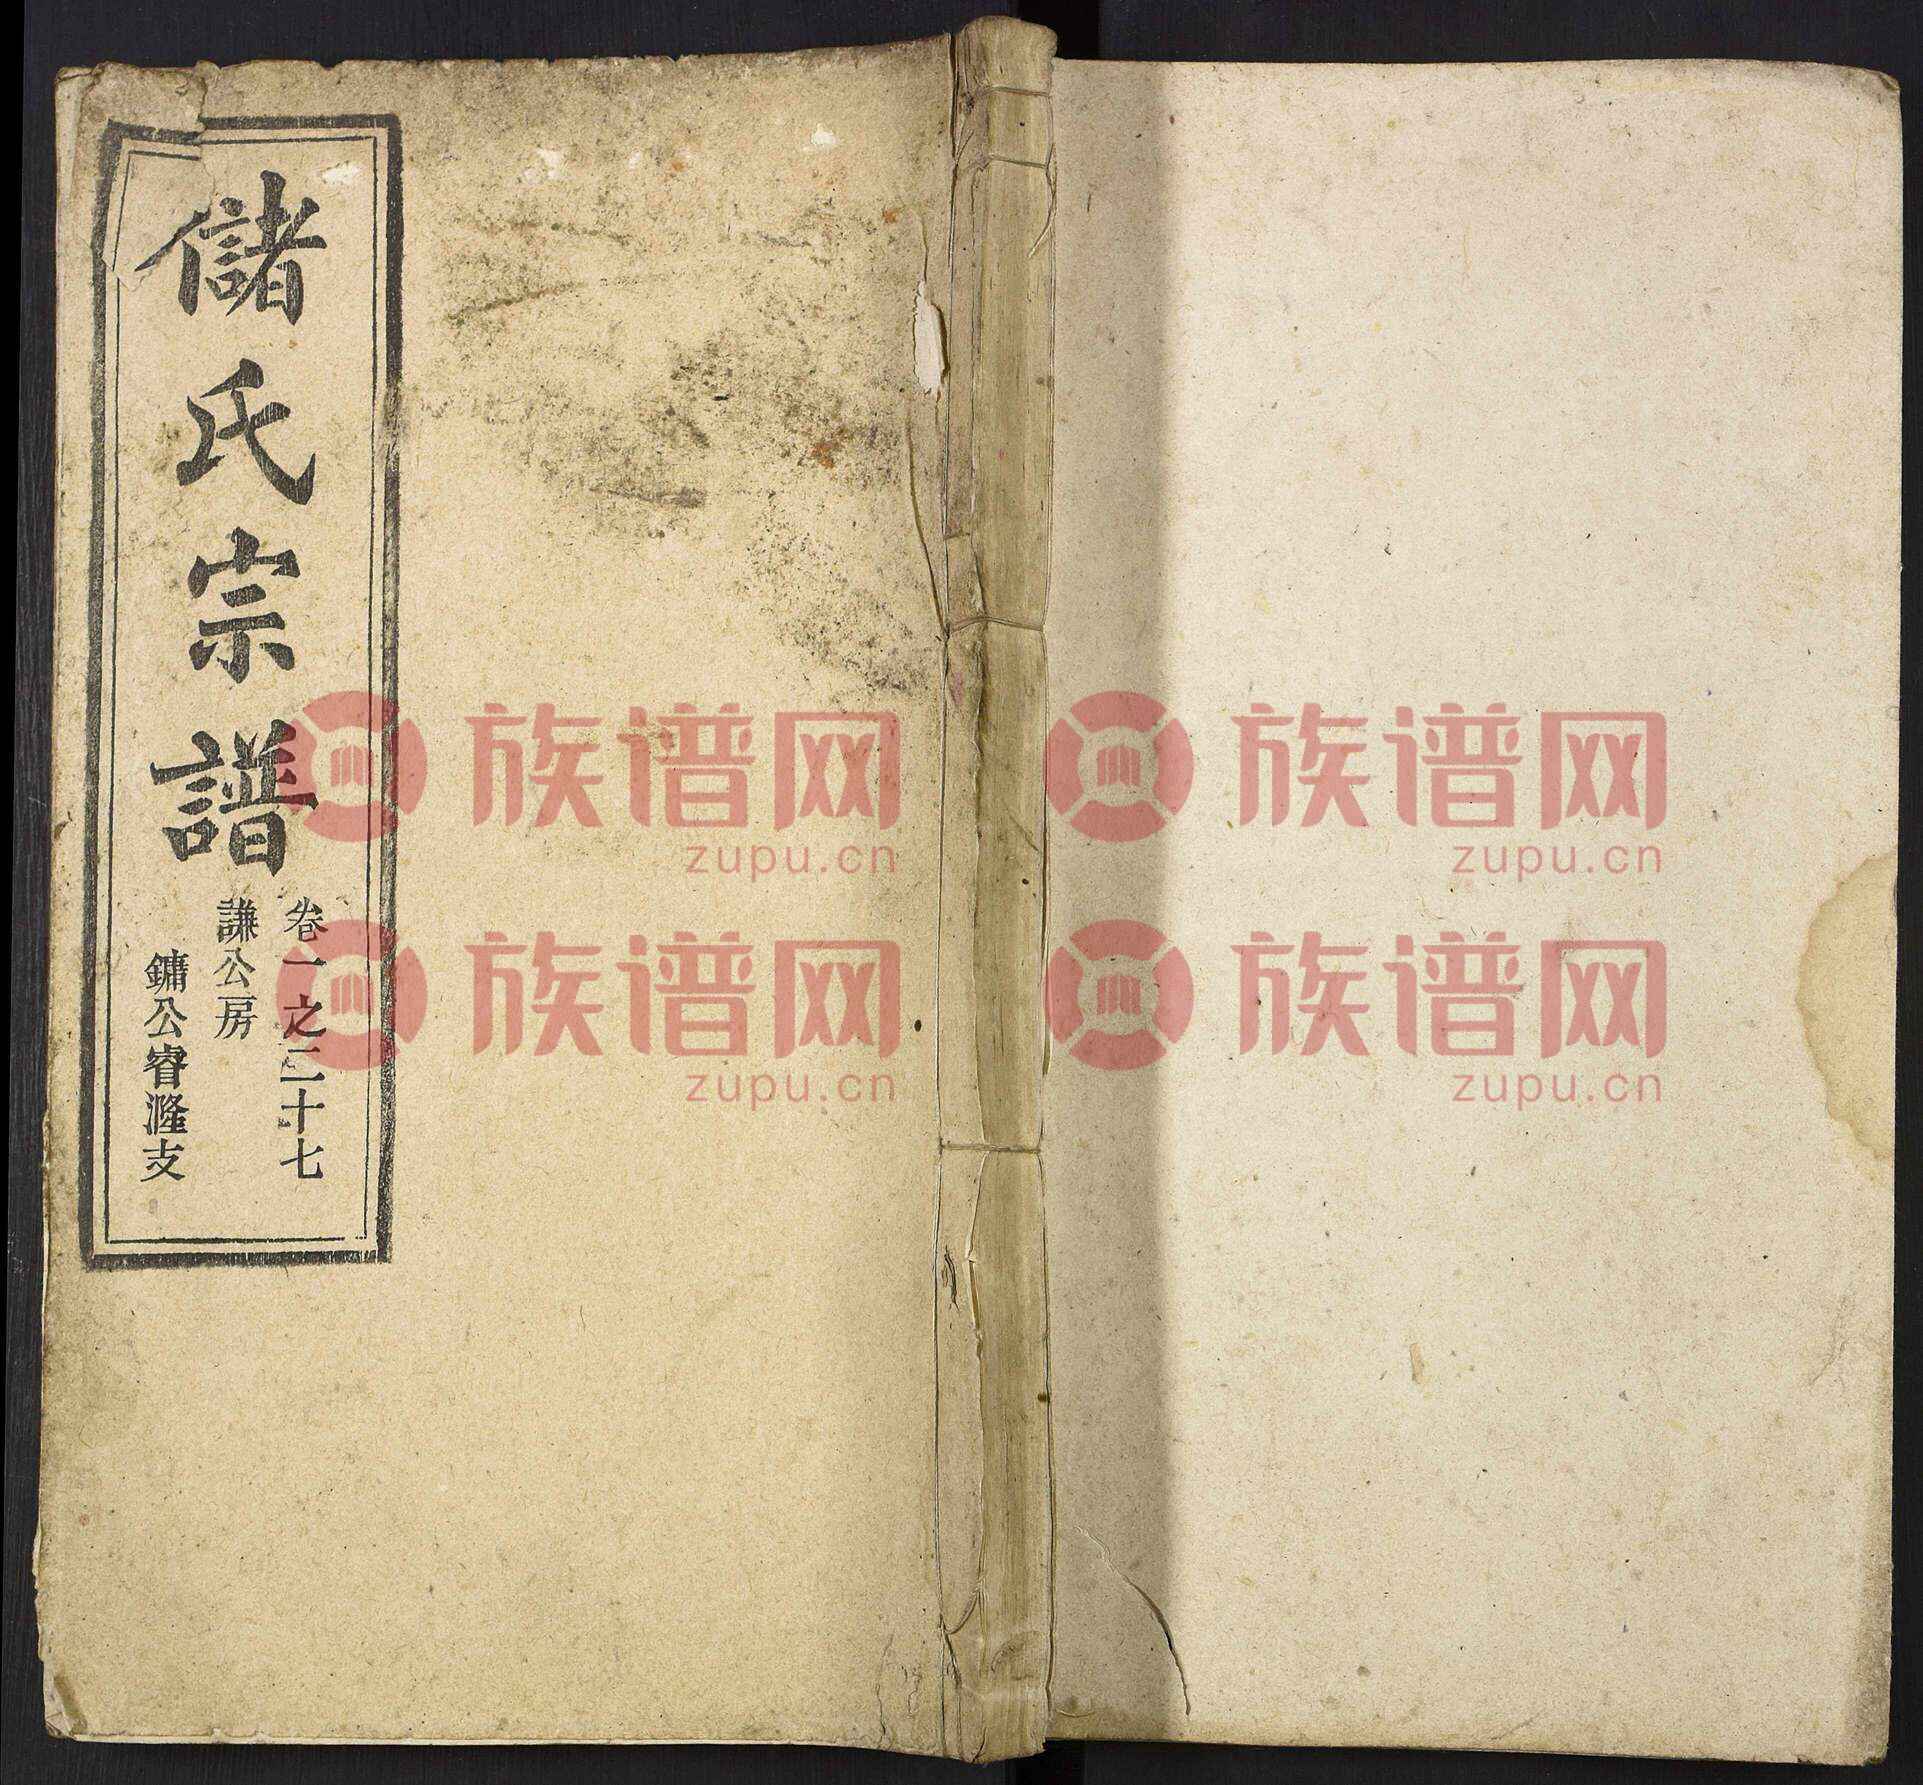 儲氏宗譜
卷一之二十七
謙公房
鏞公睿漋支
族谱网
zupu.cn
族谱网
zupu.cn
族谱网
zupu.cn
族谱网
zupu.cn